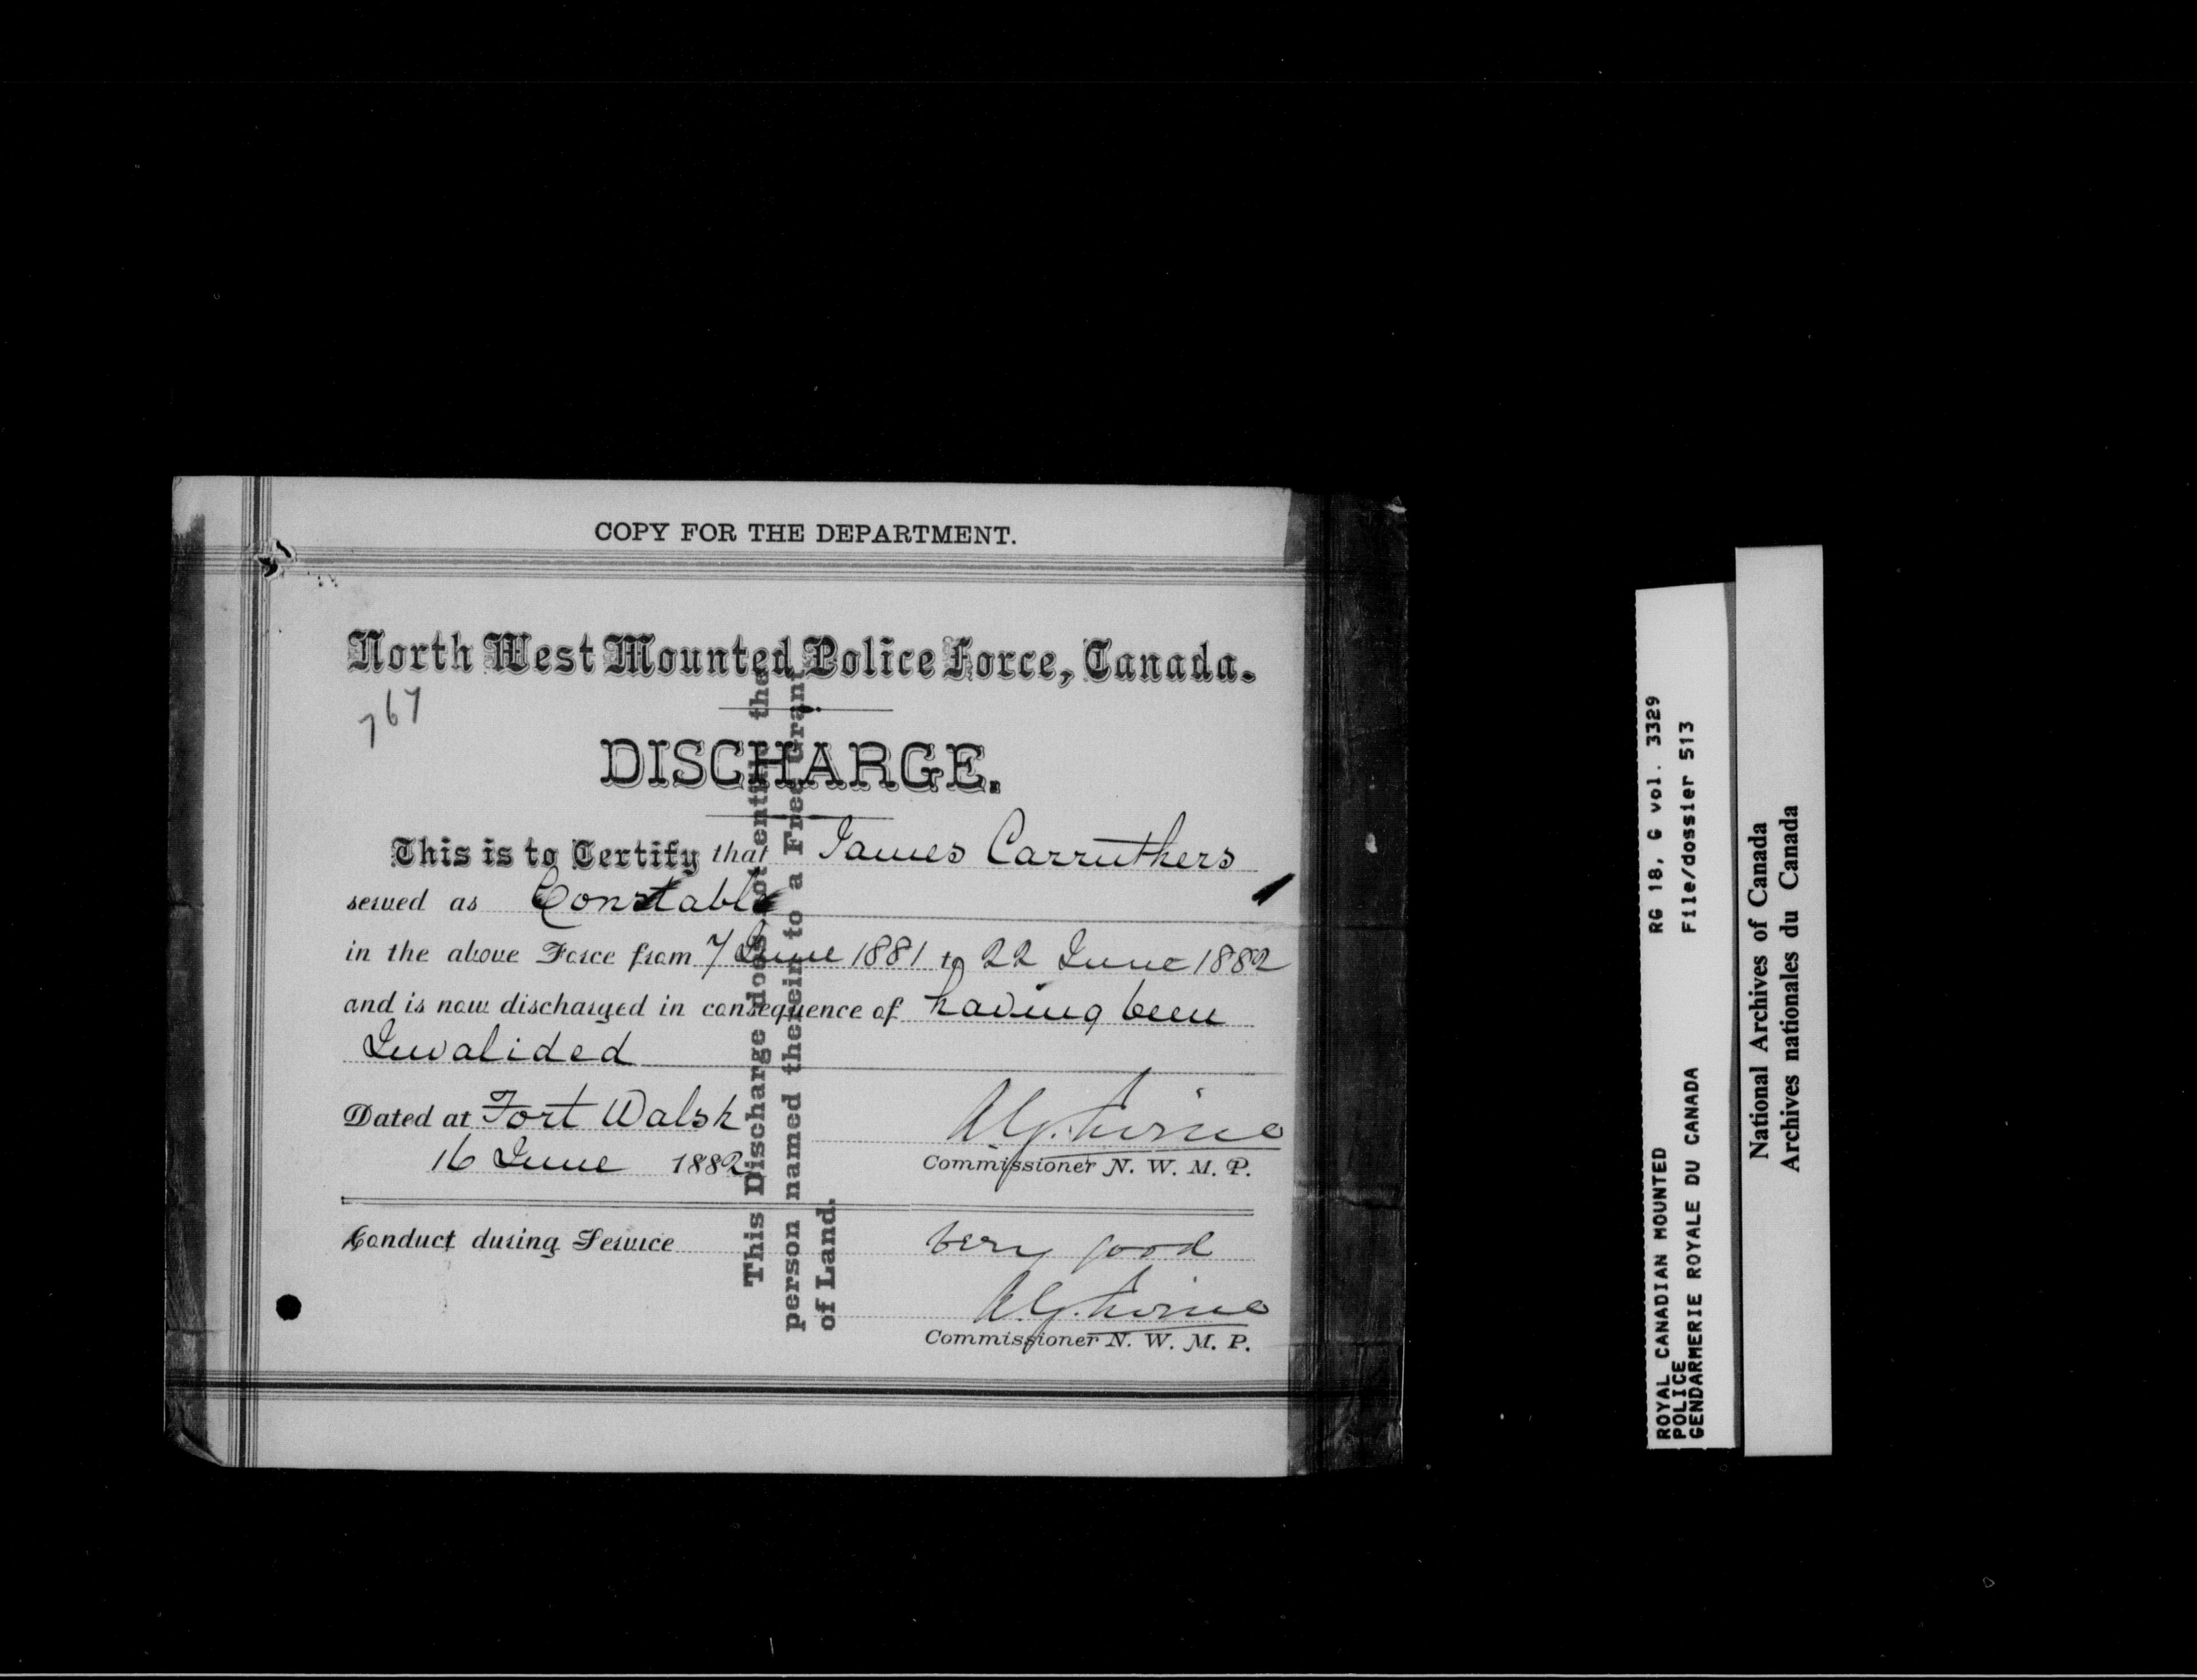 COPY FOR THE DEPARTMENT.
North West Mounted Police Force, Canada.
767
DISCHARGE.
This is to Certify that James Carruthers
served as Constable
in the above Force from 7 June 1881 to 22 June 1882
and is now discharged in consequence of having been
Invalided
Dated at Fort Walsh
16 June 1882
A.G. Irvine
Commissioner N. W. M. P.
Conduct during Service very good
A.G. Irvine
Commissioner N. W. M. P.
This Discharge does not entitle the
person named therein to a Free Grant
of Land.
ROYAL CANADIAN MOUNTED RG 18, G vol. 3329
POLICE
GENDARMERIE ROYALE DU CANADA File/dossier 513
National Archives of Canada
Archives nationales du Canada